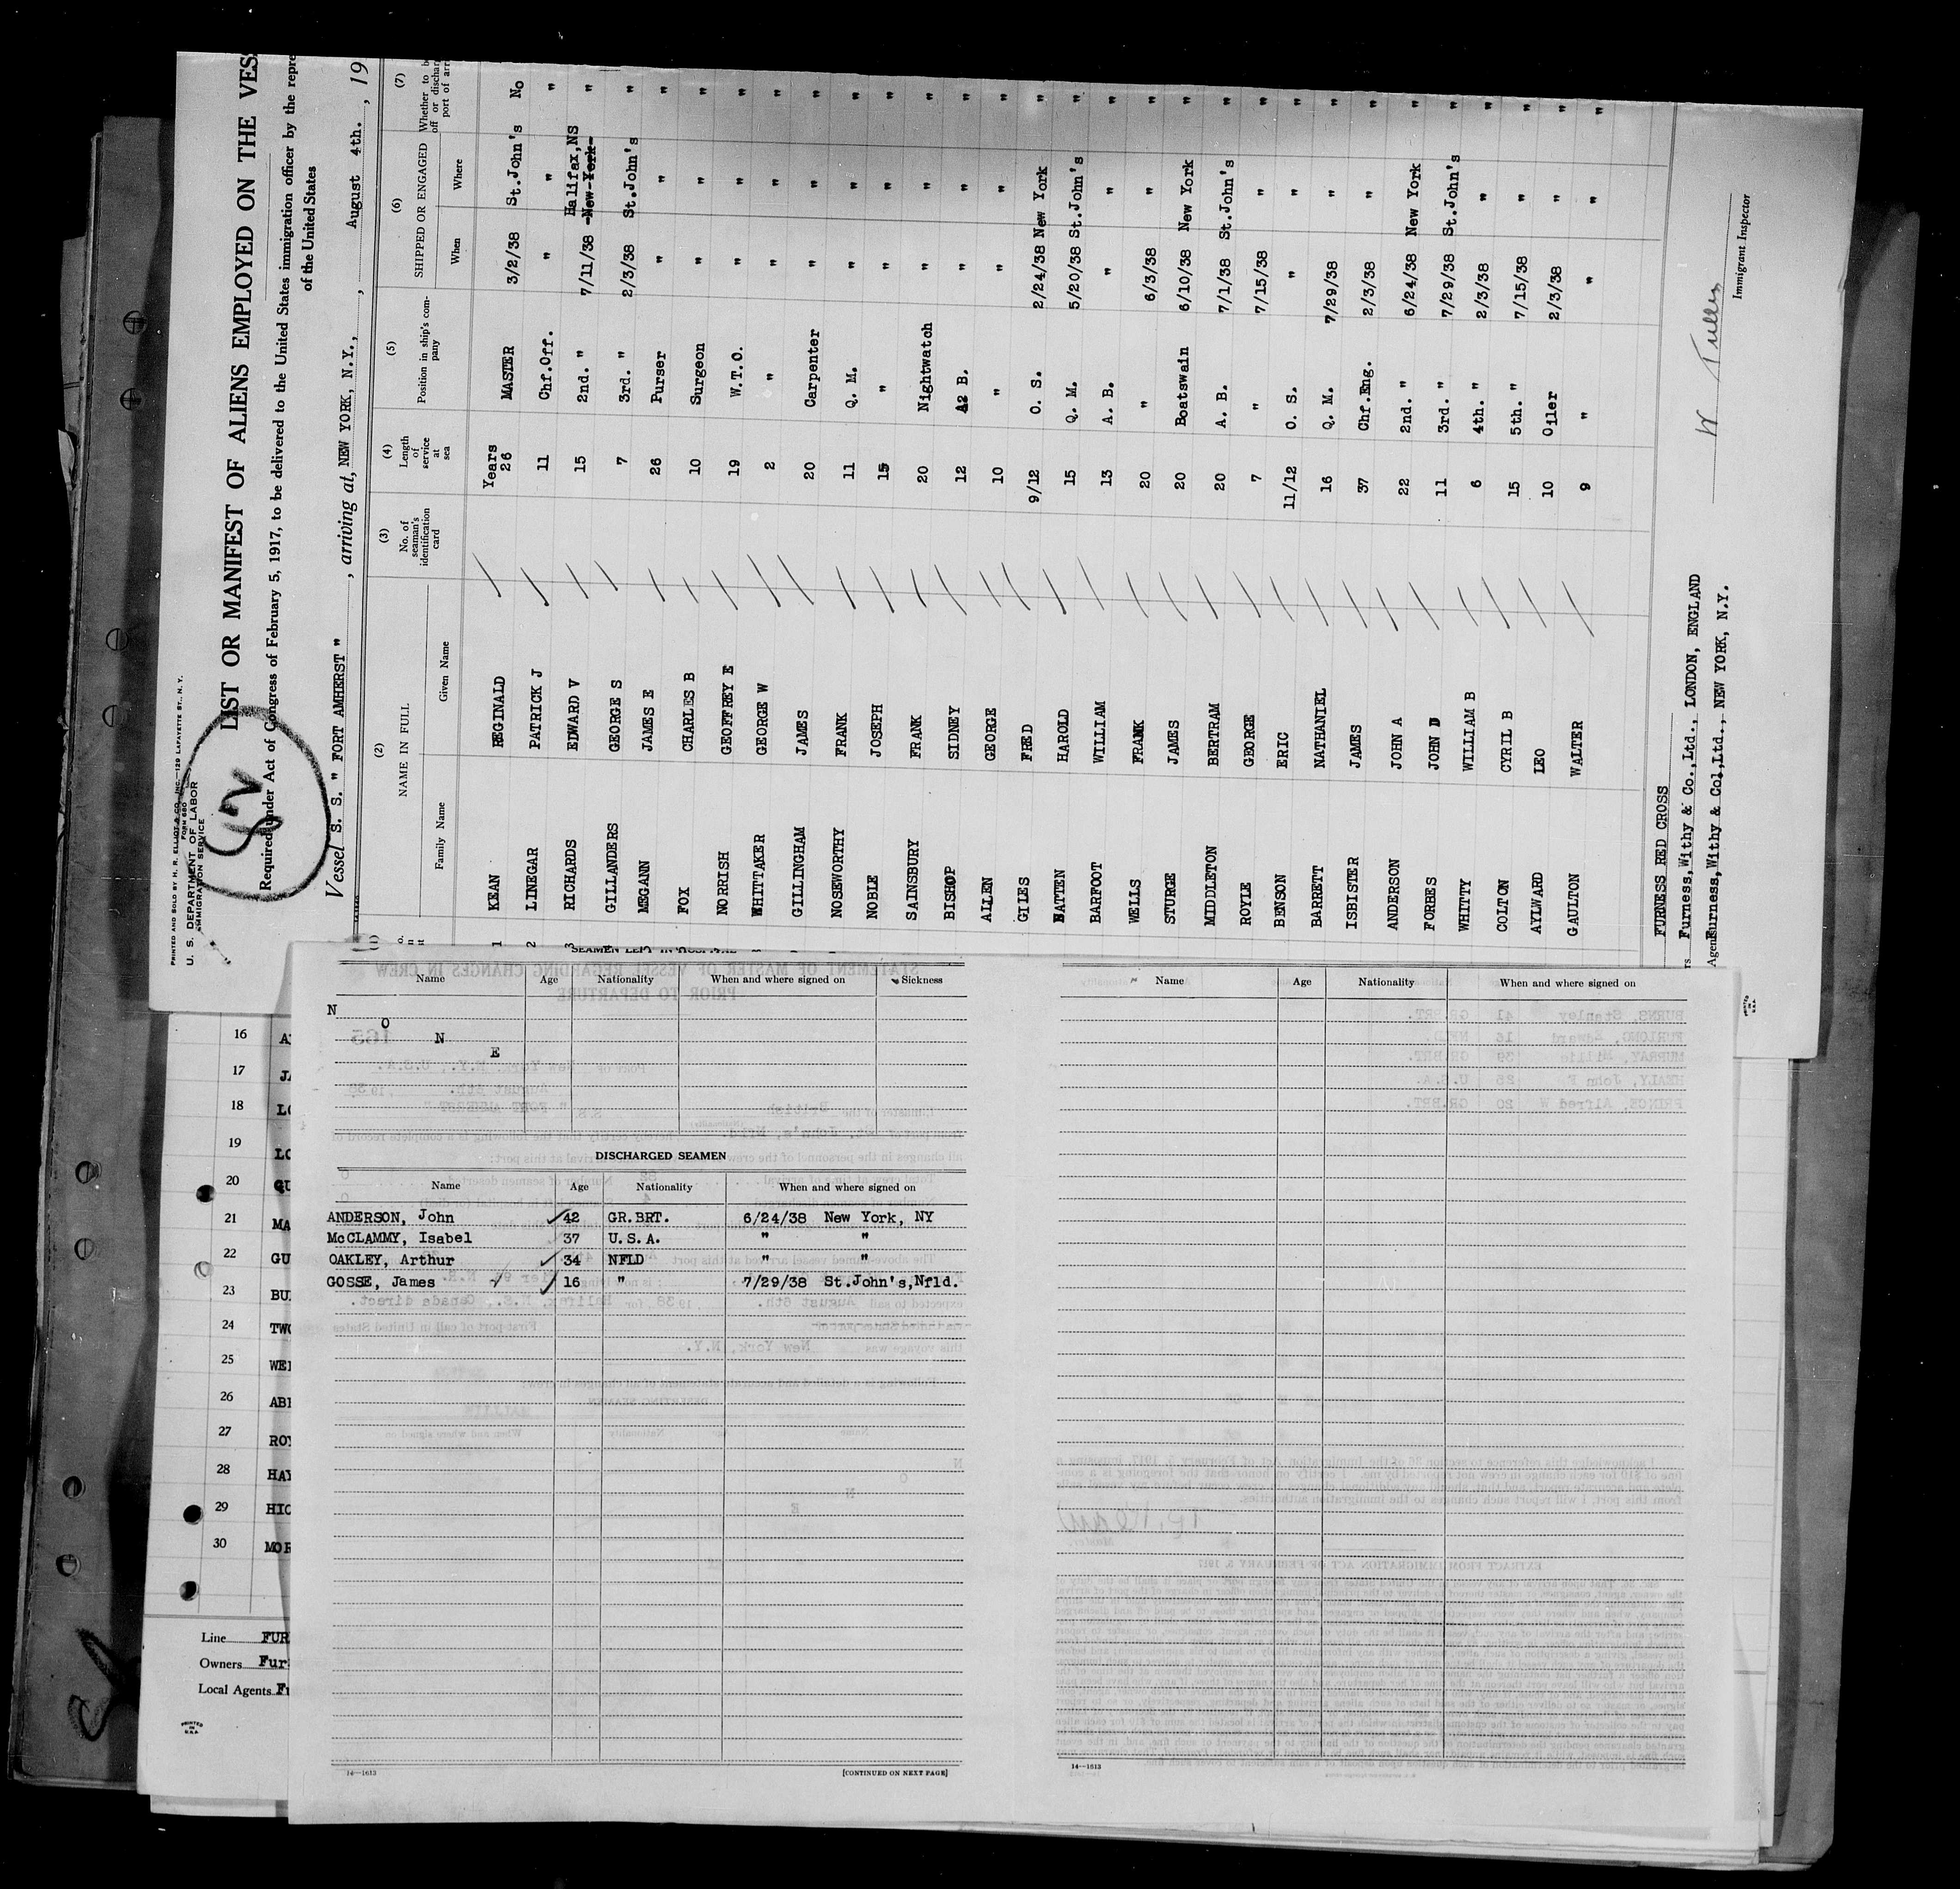 PRINTED AND SOLD BY H. R. ELLIOT & CO., INC.—129 LAFAYETTE ST., N. Y.
FORM 680
U. S. DEPARTMENT OF LABOR
IMMIGRATION SERVICE
LIST OR MANIFEST OF ALIENS EMPLOYED ON THE VES
Required under Act of Congress of February 5, 1917, to be delivered to the United States immigration officer by the repre
of the United States
Vessel S. S. " FORT AMHERST " , arriving at, NEW YORK, N.Y., , August 4th. , 19
(1) (2) (3) (4) (5) (6) (7)
NAME IN FULL No. of seaman's identification card Length of service at sea Position in ship's company SHIPPED OR ENGAGED Whether to be
Family Name Given Name When Where
1 KEAN REGINALD Years 26 MASTER 3/2/38 St.John's No
2 LINEGAR PATRICK J 11 Chf.Off. " " "
3 RICHARDS EDWARD V 15 2nd. " 7/11/38 Halifax,NS New York "
GILLANDERS GEORGE S 7 3rd. " 2/3/38 St.John's "
MEGANN JAMES E 26 Purser " " "
FOX CHARLES B 10 Surgeon " " "
NORRISH GEOFFREY E 19 W.T.O. " " "
WHITTAKER GEORGE W 2 " " " "
GILLINGHAM JAMES 20 Carpenter " " "
NOSEWORTHY FRANK 11 Q. M. " " "
NOBLE JOSEPH 15 " " " "
SAINSBURY FRANK 20 Nightwatch " " "
BISHOP SIDNEY 12 A. B. " " "
ALLEN GEORGE 10 " " " "
GILES FRED 9/12 O. S. 2/24/38 New York "
BATTEN HAROLD 15 Q. M. 5/20/38 St.John's "
BARFOOT WILLIAM 13 A. B. " " "
WELLS FRANK 20 " 6/3/38 " "
STURGE JAMES 20 Boatswain 6/10/38 New York "
MIDDLETON BERTRAM 20 A. B. 7/1/38 St.John's "
ROYLE GEORGE 7 " 7/15/38 " "
BENSON ERIC 11/12 O. S. " " "
BARRETT NATHANIEL 16 Q. M. 7/29/38 " "
ISBISTER JAMES 37 Chf.Eng. 2/3/38 " "
ANDERSON JOHN A 22 2nd. " 6/24/38 New York "
FORBES JOHN D 11 3rd. " 7/29/38 St.John's "
WHITTY WILLIAM B 6 4th. " 2/3/38 " "
COLTON CYRIL B 15 5th. " 7/15/38 " "
AYLWARD LEO 10 Oiler 2/3/38 " "
GAULTON WALTER 9 " " " "
FURNESS RED CROSS
Furness,Withy & Co.,Ltd., LONDON, ENGLAND
Furness,Withy & Col,Ltd., NEW YORK, N.Y.
Immigrant Inspector
Name Age Nationality When and where signed on Sickness
N
O
N
E
DISCHARGED SEAMEN
Name Age Nationality When and where signed on
ANDERSON, John 42 GR.BRT. 6/24/38 New York, NY
McCLAMMY, Isabel 37 U.S.A. " "
OAKLEY, Arthur 34 NFLD " "
GOSSE, James 16 " 7/29/38 St.John's,Nfld.
14—1613 [CONTINUED ON NEXT PAGE]
Name Age Nationality When and where signed on
14—1613
16 A
17 JA
18 LO
19 LO
20 GU
21 MA
22 GU
23 BU
24 TWO
25 WE
26 AB
27 ROY
28 HAY
29 HIC
30 MOR
Line FUR
Owners Fur
Local Agents F
PRINTED IN U.S.A.